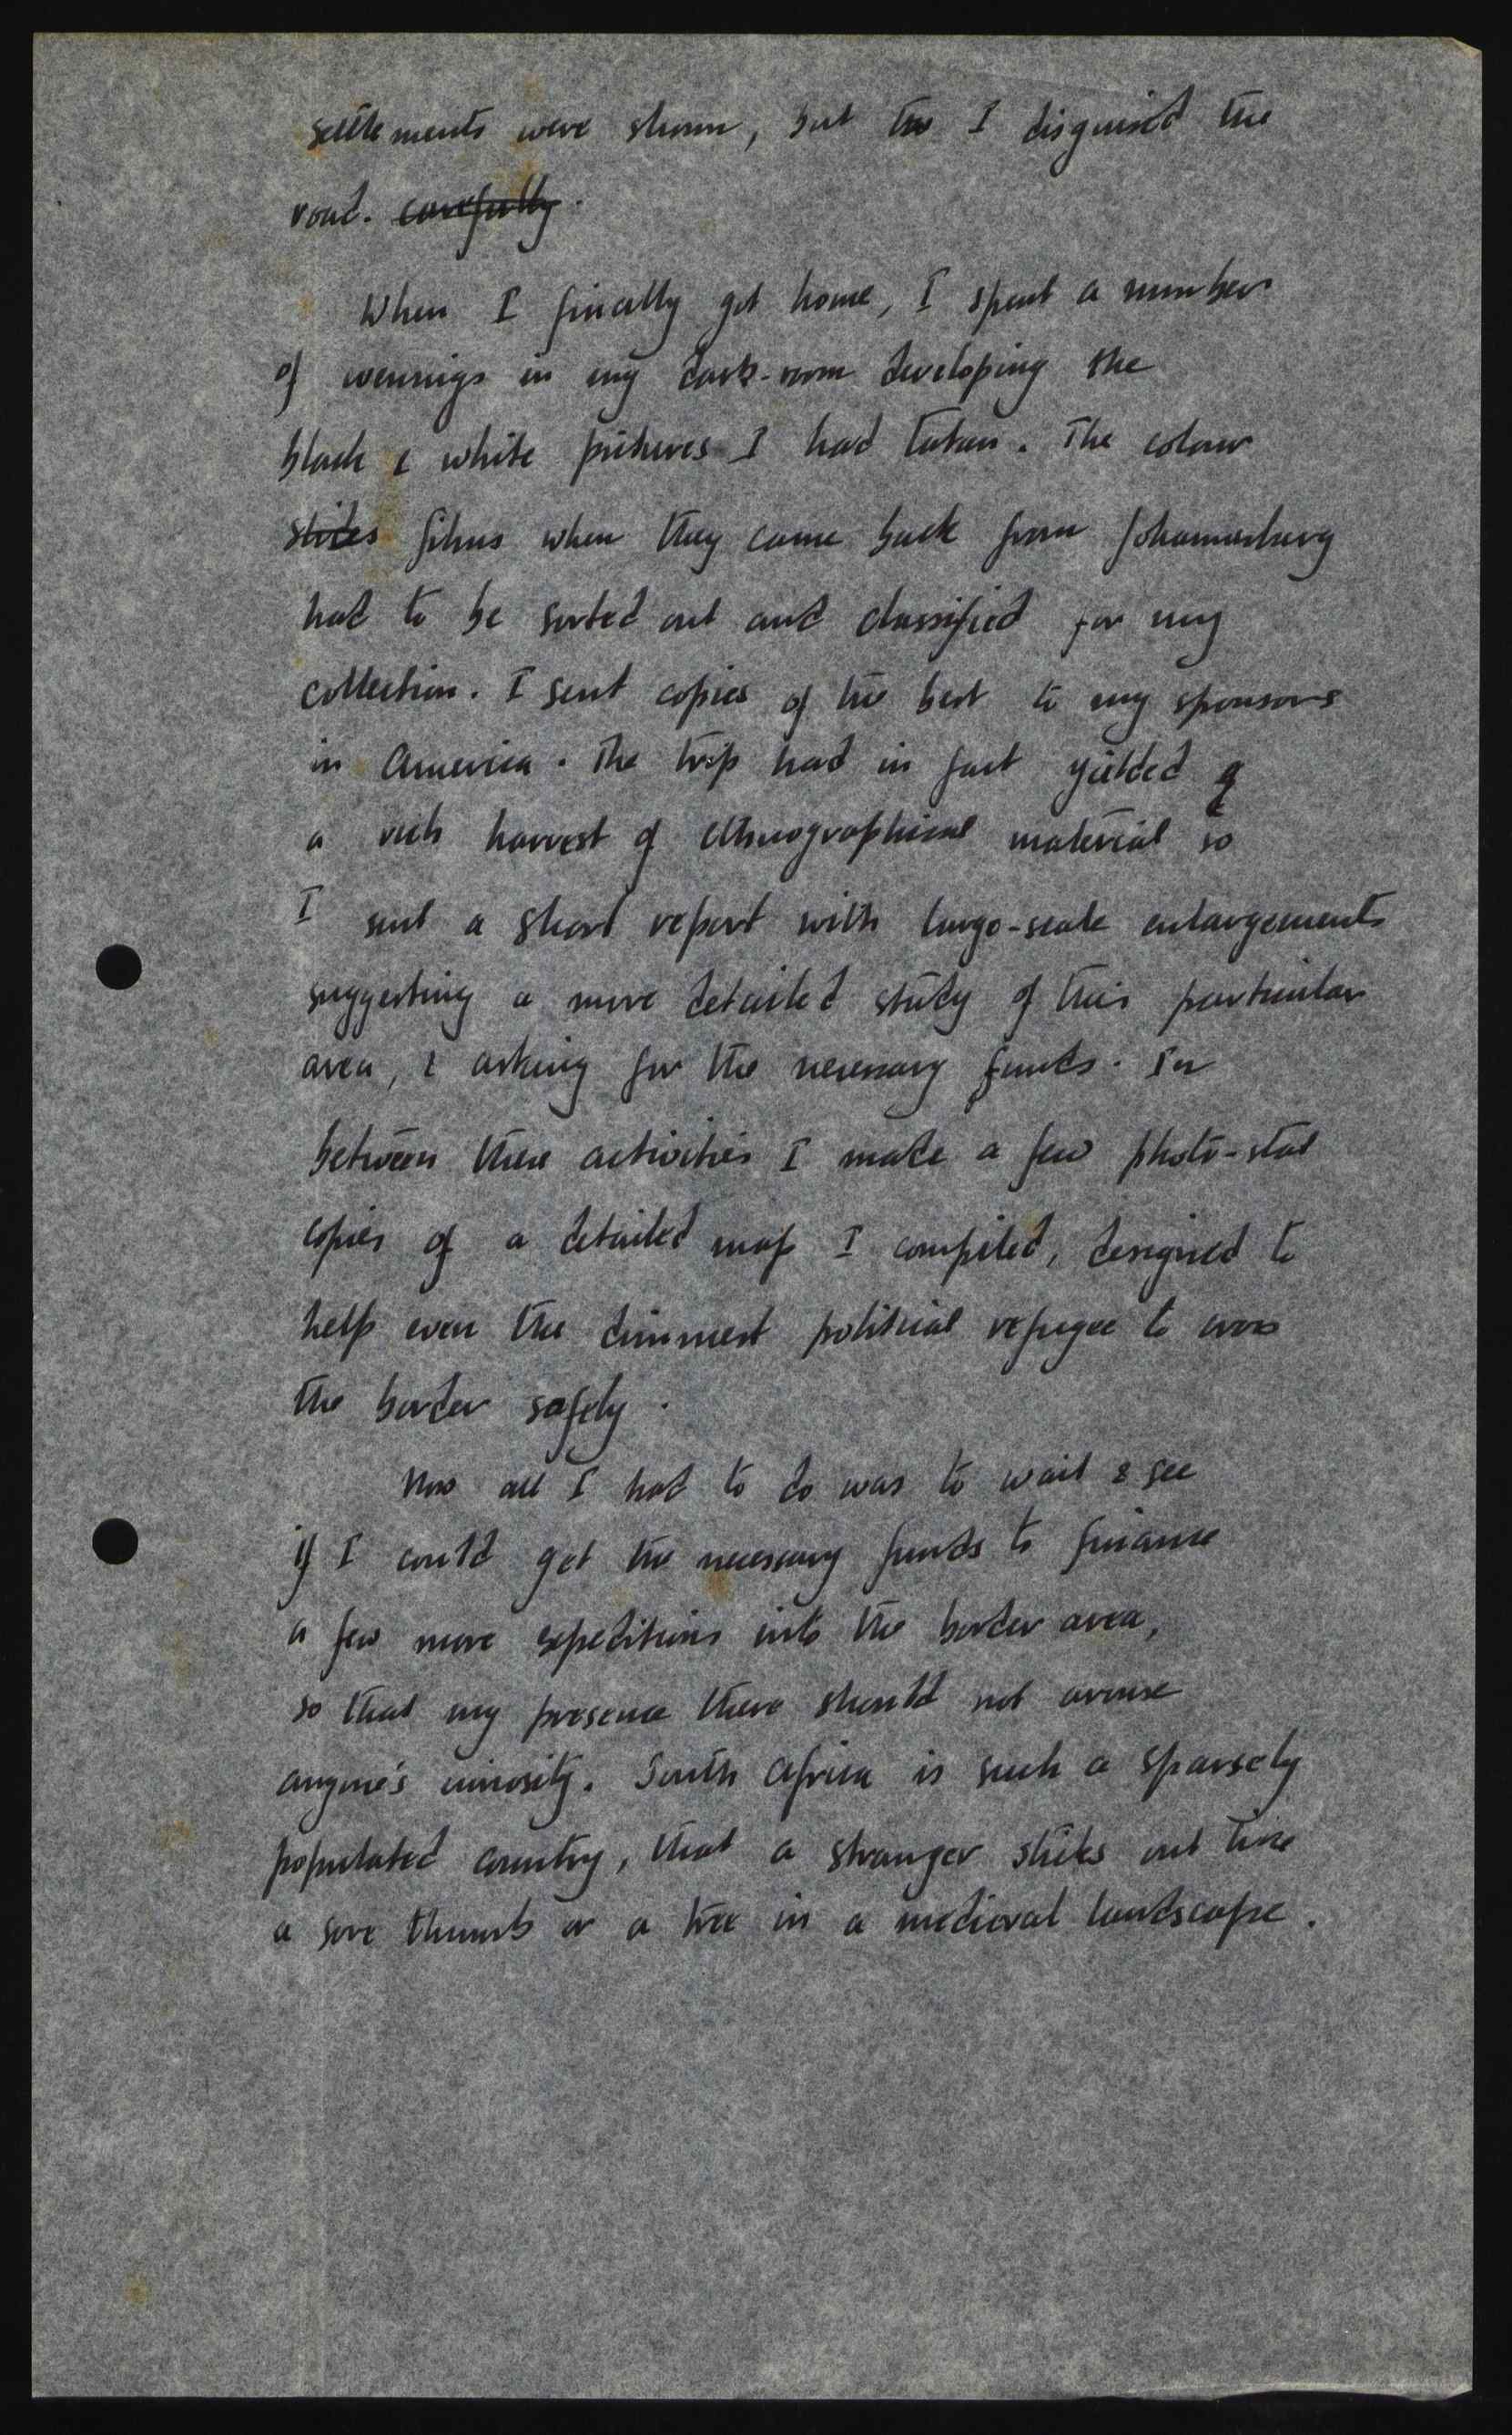 settlements were shown, but I disguised the
road. carefully.
When I finally got home, I spent a number
of evenings in my dark-room developing the
black & white pictures I had taken. The colour
slides films when they came back from Johannesburg
had to be sorted out and classified for my
collection. I sent copies of the best to my sponsors
in America. The trip had in fact yielded
a rich harvest of ethnographical material so
I sent a short report with large-scale enlargements
suggesting a more detailed study of this particular
area, & asking for the necessary funds. In
between these activities I made a few photo-stat
copies of a detailed map I compiled, designed to
help even the dimmest political refugee to cross
the border safely.
Now all I had to do was to wait & see
if I could get the necessary funds to finance
a few more expeditions into the border area,
so that my presence there should not arouse
anyone's curiosity. South Africa is such a sparsely
populated country, that a stranger sticks out like
a sore thumb or a tree in a medieval landscape.